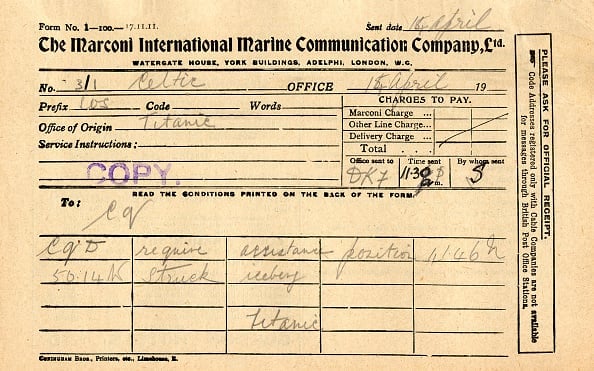 Form No. 1—100.—17.11.11. Sent date April
The Marconi International Marine Communication Company, Ltd.
WATERGATE HOUSE, YORK BUILDINGS, ADELPHI, LONDON, W.C.
No. 3/1 Celtic OFFICE April 19
Prefix Cos Code Words
CHARGES TO PAY.
Marconi Charge ...
Office of Origin Titanic
Other Line Charge...
Delivery Charge ...
Service Instructions:
Total
COPY.
Office sent to Time sent By whom sent
DKF 11.30 m. S
READ THE CONDITIONS PRINTED ON THE BACK OF THE FORM.
To:
CQ
CQD require assistance position 41.46 N
50.14 W Struck iceberg
Titanic
CONINGHAM BROS., Printers, etc., Limehouse, E.
PLEASE ASK FOR OFFICIAL RECEIPT.
Code Addresses registered only with Cable Companies are not available
for messages through British Post Office Stations.